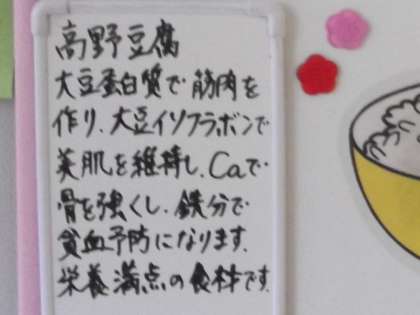 高野豆腐
大豆蛋白質で筋肉を
作り、大豆イソフラボンで
美肌を維持し、Caで
骨を強くし、鉄分で
貧血予防になります。
栄養満点の食材です。